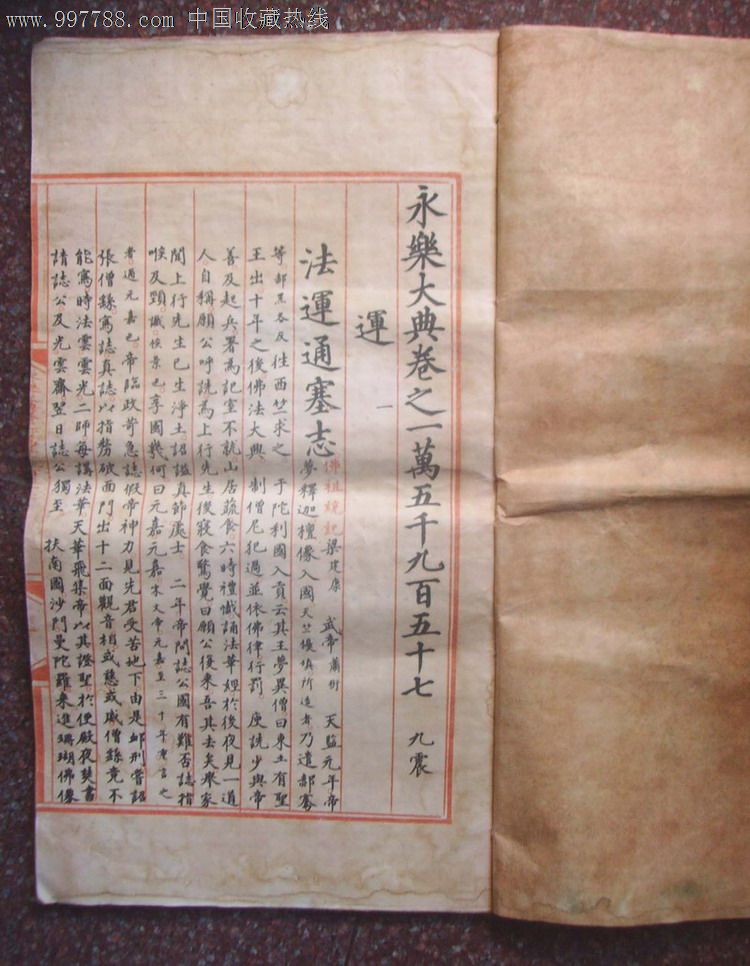 www.997788.com 中国收藏热线
永樂大典卷之一萬五千九百五十七 九震
運 一
法運通塞志 佛祖統記 梁建康 武帝蕭衍 天監元年帝
夢釋迦檀像入國天竺優填所造者乃遣郝騫
等郝 及往西竺求之 于陀利國入貢云其王夢異僧曰東土有聖
王出十年之後佛法大興 制僧尼犯過並依佛律行罰 庾詵少與帝
善及起兵署為記室不就山居蔬食六時禮懺誦法華經於後夜見一道
人自稱願公呼詵為上行先生後寢食驚覺曰願公後來吾其去矣舉家
聞上行先生已生淨土詔謚真節處士 二年帝問誌公國有難否誌指
喉及頸讖侯景也享國幾何曰元嘉元嘉宋文帝元嘉至三十年重言之
者過元嘉也帝臨政苛急誌假帝神力見先君受苦地下由是卹刑嘗詔
張僧繇寫誌真誌以指剺破面門出十二面觀音相或慈或威僧繇竟不
能寫時法雲雲光二師每講法華天華飛集帝以其證聖於便殿夜焚書
請誌公及光雲齋翌日誌公獨至 扶南國沙門曼陀羅來進珊瑚佛像